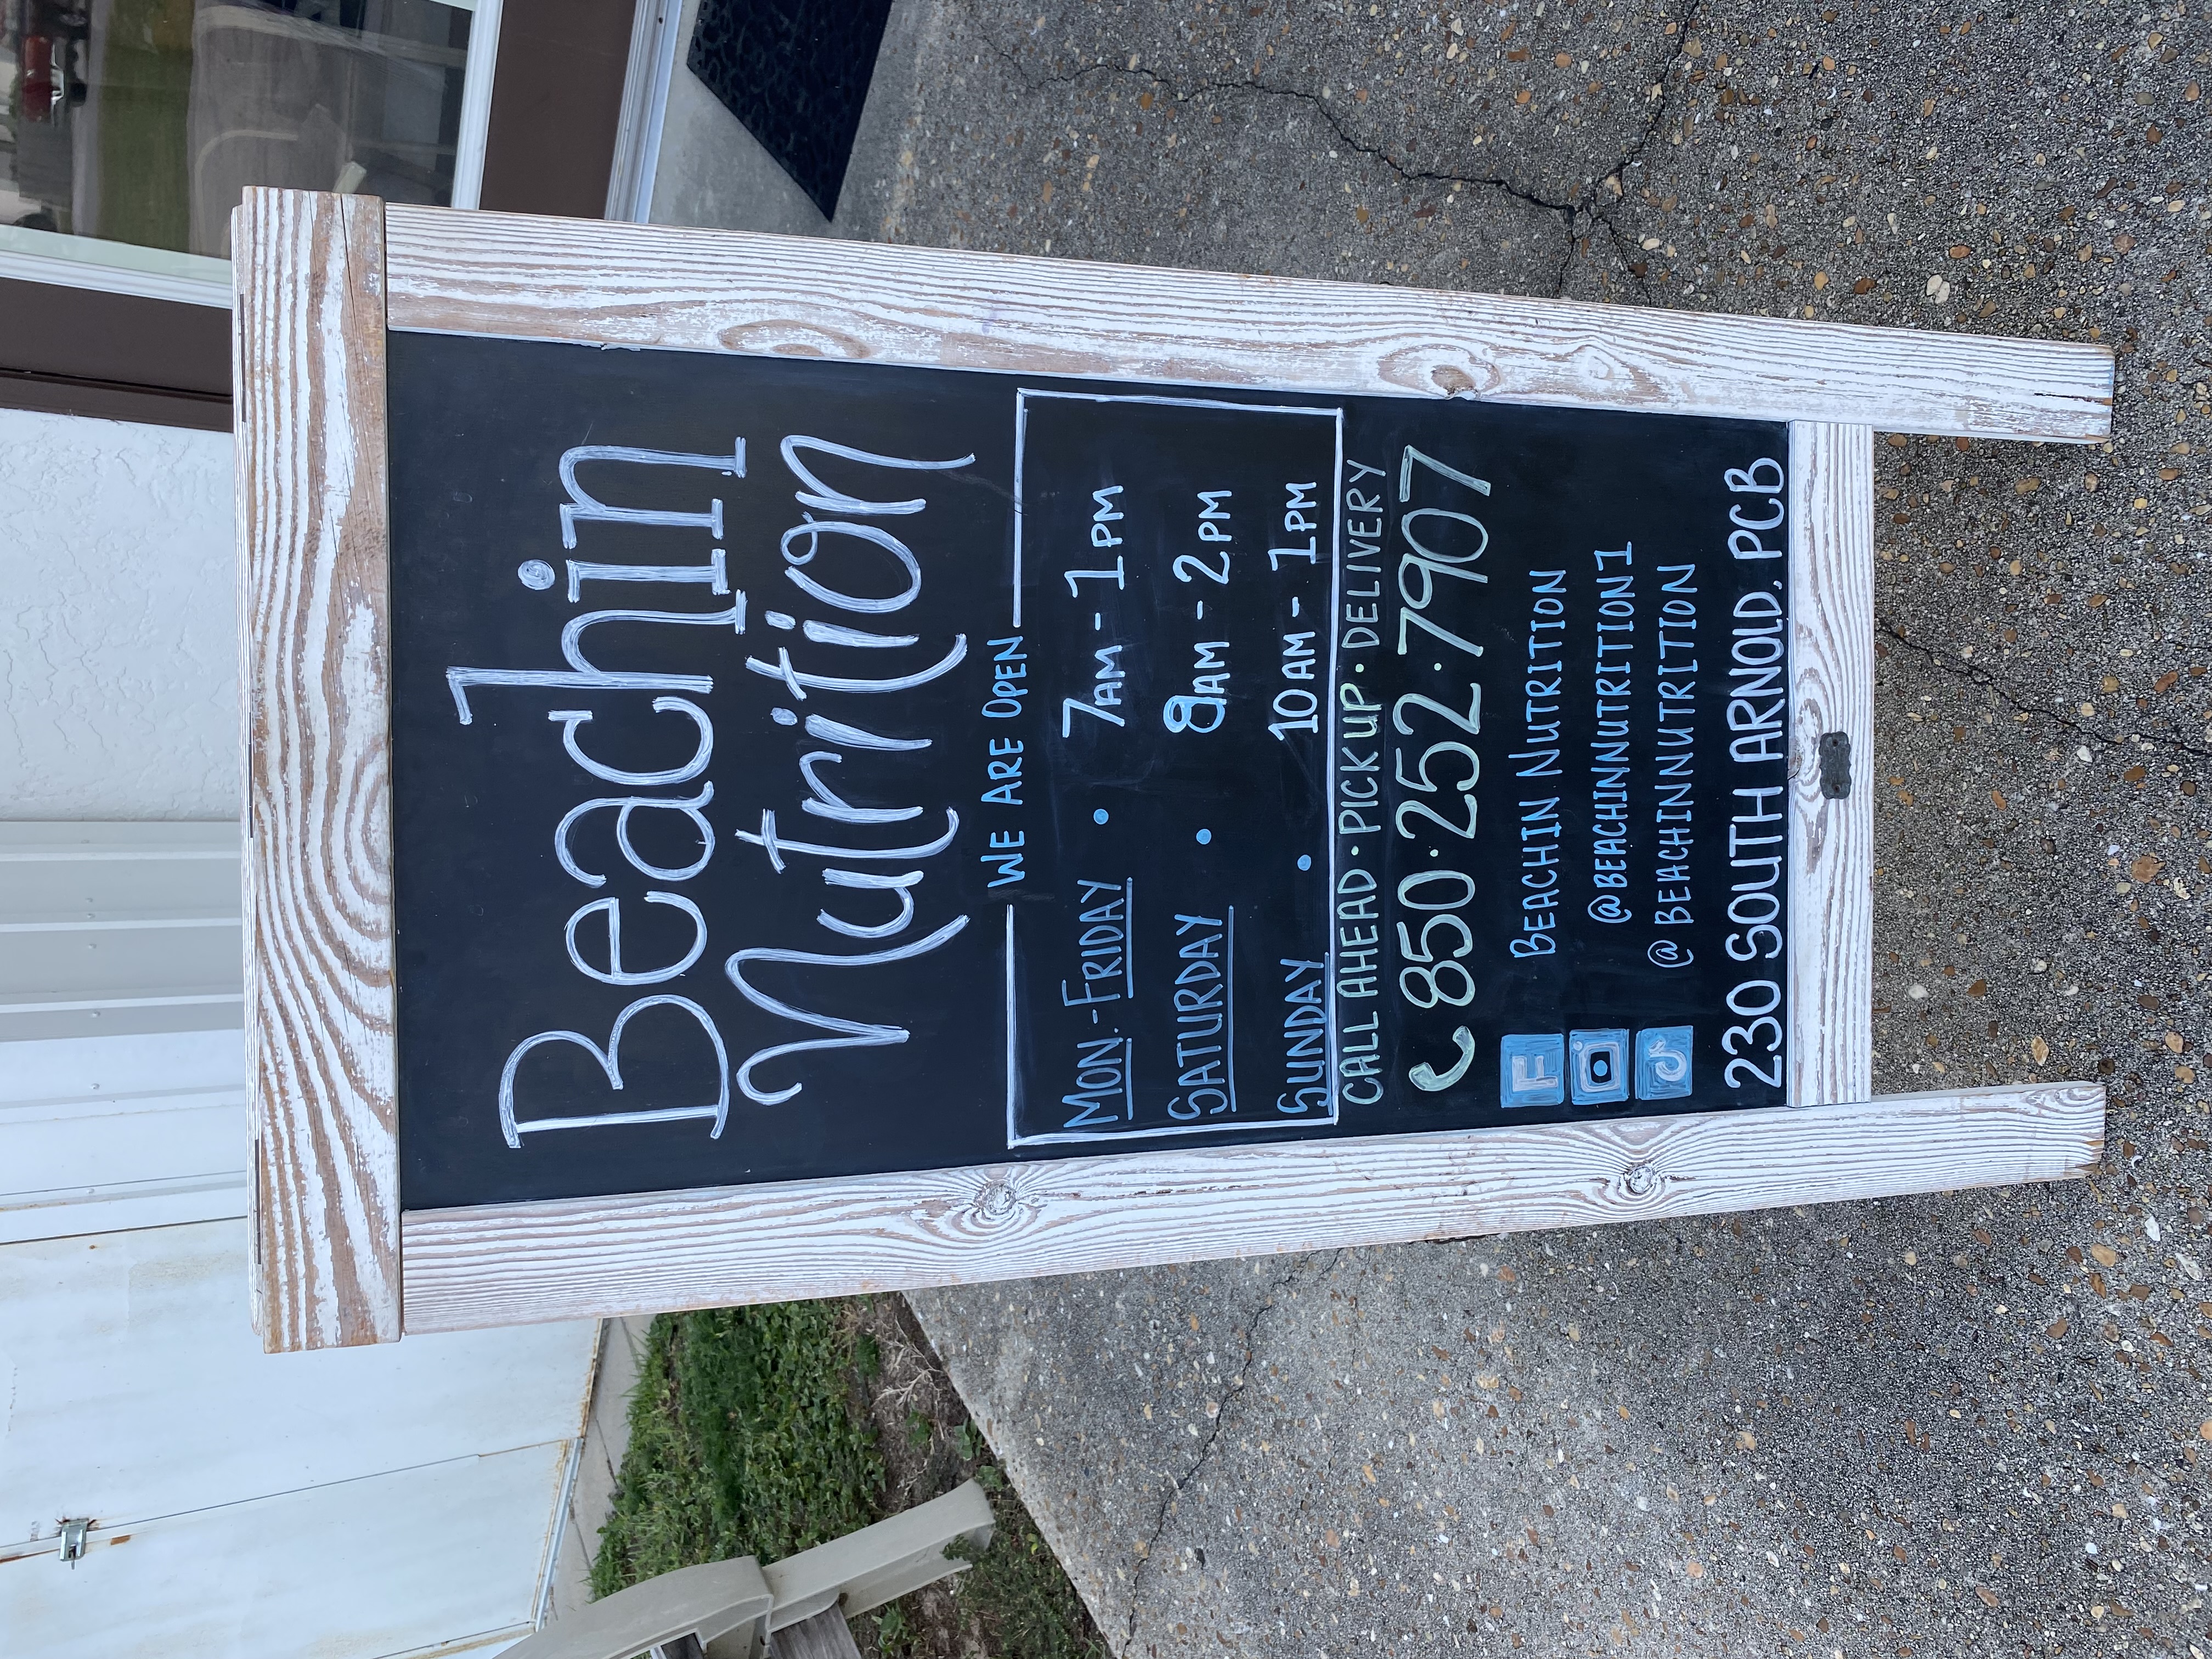 Beachin
Nutrition
WE ARE OPEN
MON.-FRIDAY • 7AM - 1PM
SATURDAY • 8AM - 2PM
SUNDAY • 10AM - 1PM
CALL AHEAD • PICK UP • DELIVERY
850•252•7907
F BEACHIN NUTRITION
@BEACHINNUTRITION1
@BEACHINNUTRITION
230 SOUTH ARNOLD, PCB